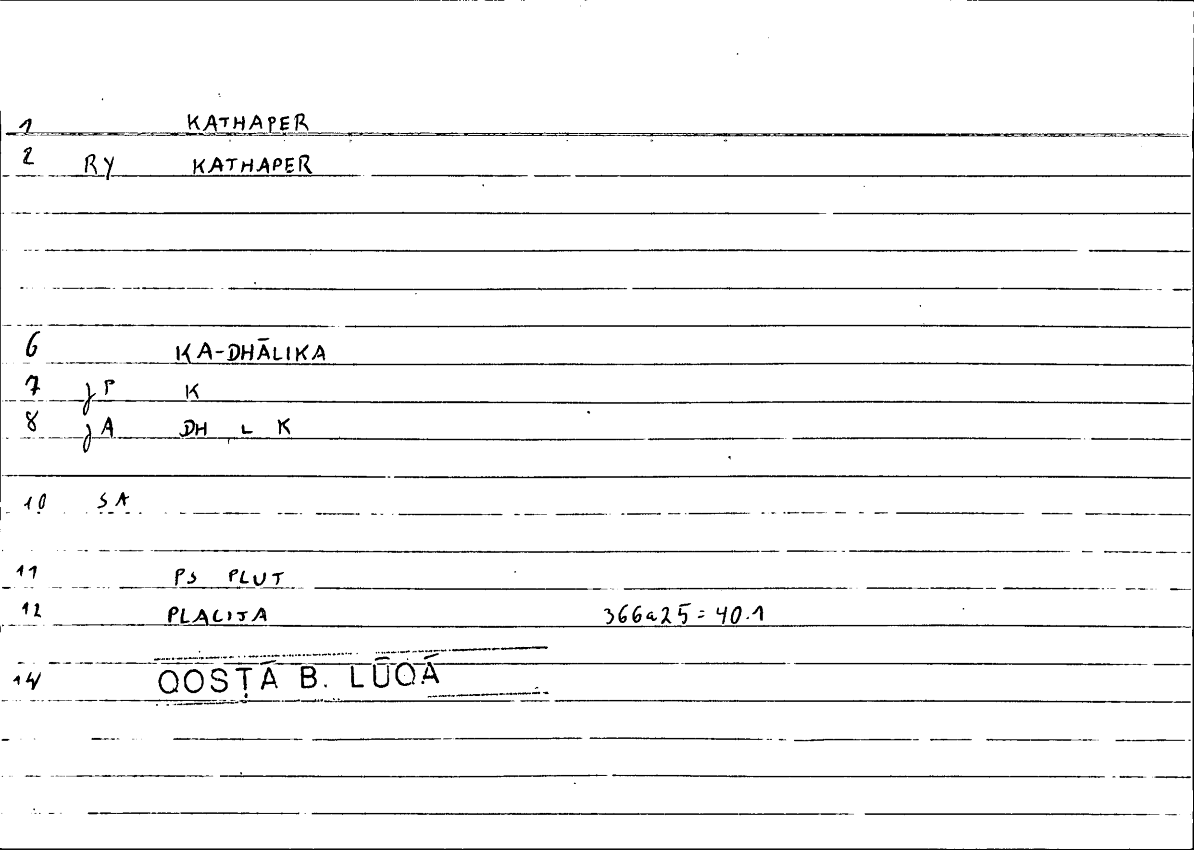 1 KATHAPER
2 RY KATHAPER
6 KA-DHĀLIKA
7 jP K
8 jA DH L K
10 SA
11 PS PLUT
12 PLACITA 366a25=40.1
14 QOSṬĀ B. LŪQĀ